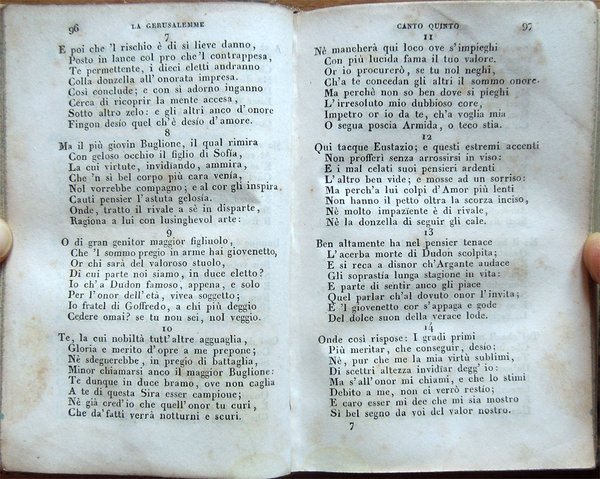 96 LA GERUSALEMME
7
E poi che 'l rischio è di sì lieve danno,
Posto in lance col pro che 'l contrappesa,
Te permettente, i dieci eletti andranno
Colla donzella all' onorata impresa.
Così conclude; e con sì adorno inganno
Cerca di ricoprir la mente accesa,
Sotto altro zelo: e gli altri anco d'onore
Fingon desio quel ch'è desio d'amore.
8
Ma il più giovin Buglione, il qual rimira
Con geloso occhio il figlio di Sofia,
La cui virtute, invidiando, ammira,
Che 'n sì bel corpo più cara venia,
Nol vorrebbe compagno; e al cor gli inspira
Cauti pensier l'astuta gelosia.
Onde, tratto il rivale a sè in disparte,
Ragiona a lui con lusinghevol arte:
9
O di gran genitor maggior figliuolo,
Che 'l sommo pregio in arme hai giovenetto,
Or chi sarà del valoroso stuolo,
Di cui parte noi siamo, in duce eletto?
Io ch'a Dudon famoso, appena, e solo
Per l'onor dell'età, vivea soggetto;
Io fratel di Goffredo, a chi più deggio
Cedere omai? se tu non sei, nol veggio.
10
Te, la cui nobiltà tutt'altre agguaglia,
Gloria e merito d'opre a me prepone;
Nè sdegnerebbe, in pregio di battaglia,
Minor chiamarsi anco il maggior Buglione:
Te dunque in duce bramo, ove non caglia
A te di questa Sira esser campione;
Nè già cred'io che quell'onor tu curi,
Che da'fatti verrà notturni e scuri.
CANTO QUINTO 97
11
Nè mancherà qui loco ove s'impieghi
Con più lucida fama il tuo valore.
Or io procurerò, se tu nol neghi,
Ch'a te concedan gli altri il sommo onore.
Ma perchè non so ben dove si pieghi
L'irresoluto mio dubbioso core,
Impetro or io da te, ch'a voglia mia
O segua poscia Armida, o teco stia.
12
Qui tacque Eustazio; e questi estremi accenti
Non profferì senza arrossirsi in viso:
E i mal celati suoi pensieri ardenti
L'altro ben vide; e mosse ad un sorriso:
Ma perch'a lui colpi d'Amor più lenti
Non hanno il petto oltra la scorza inciso,
Nè molto impaziente è di rivale,
Nè la donzella di seguir gli cale.
13
Ben altamente ha nel pensier tenace
L'acerba morte di Dudon scolpita;
E si reca a disnor ch'Argante audace
Gli soprastia lunga stagione in vita:
E parte di sentir anco gli piace
Quel parlar ch'al dovuto onor l'invita;
E 'l giovenetto cor s'appaga e gode
Del dolce suon della verace lode.
14
Onde così rispose: I gradi primi
Più meritar, che conseguir, desio;
Nè, pur che me la mia virtù sublimi,
Di scettri altezza invidïar degg' io:
Ma s'all'onor mi chiami, e che lo stimi
Debito a me, non ci verrò restio;
E caro esser mi dee che mi sia mostro
Sì bel segno da voi del valor nostro.
7